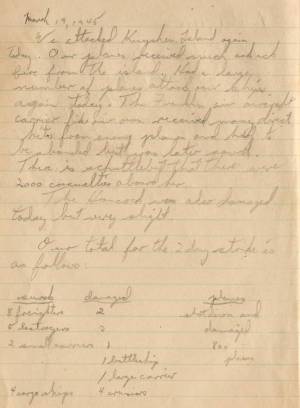 March 19, 1945
We attacked Kyushu Island again
today. Our planes received much
fire from the island. Had a large
number of planes attack our ships
again today. The Franklin our aircraft
carrier like our own received many direct
hits from enemy planes and had to
be abandoned but was later saved.
There is scuttlebutt that there were
2000 casualties aboard her.
The was also damaged
today but very slight.
Our total for the 2 day strike is
as follows:
sunk damaged planes
8 freighters 2 shot down and
5 destroyers 2 damaged
2 small carriers 1
1 battleship planes
1 large carrier
4 cargo ships 4 cruisers